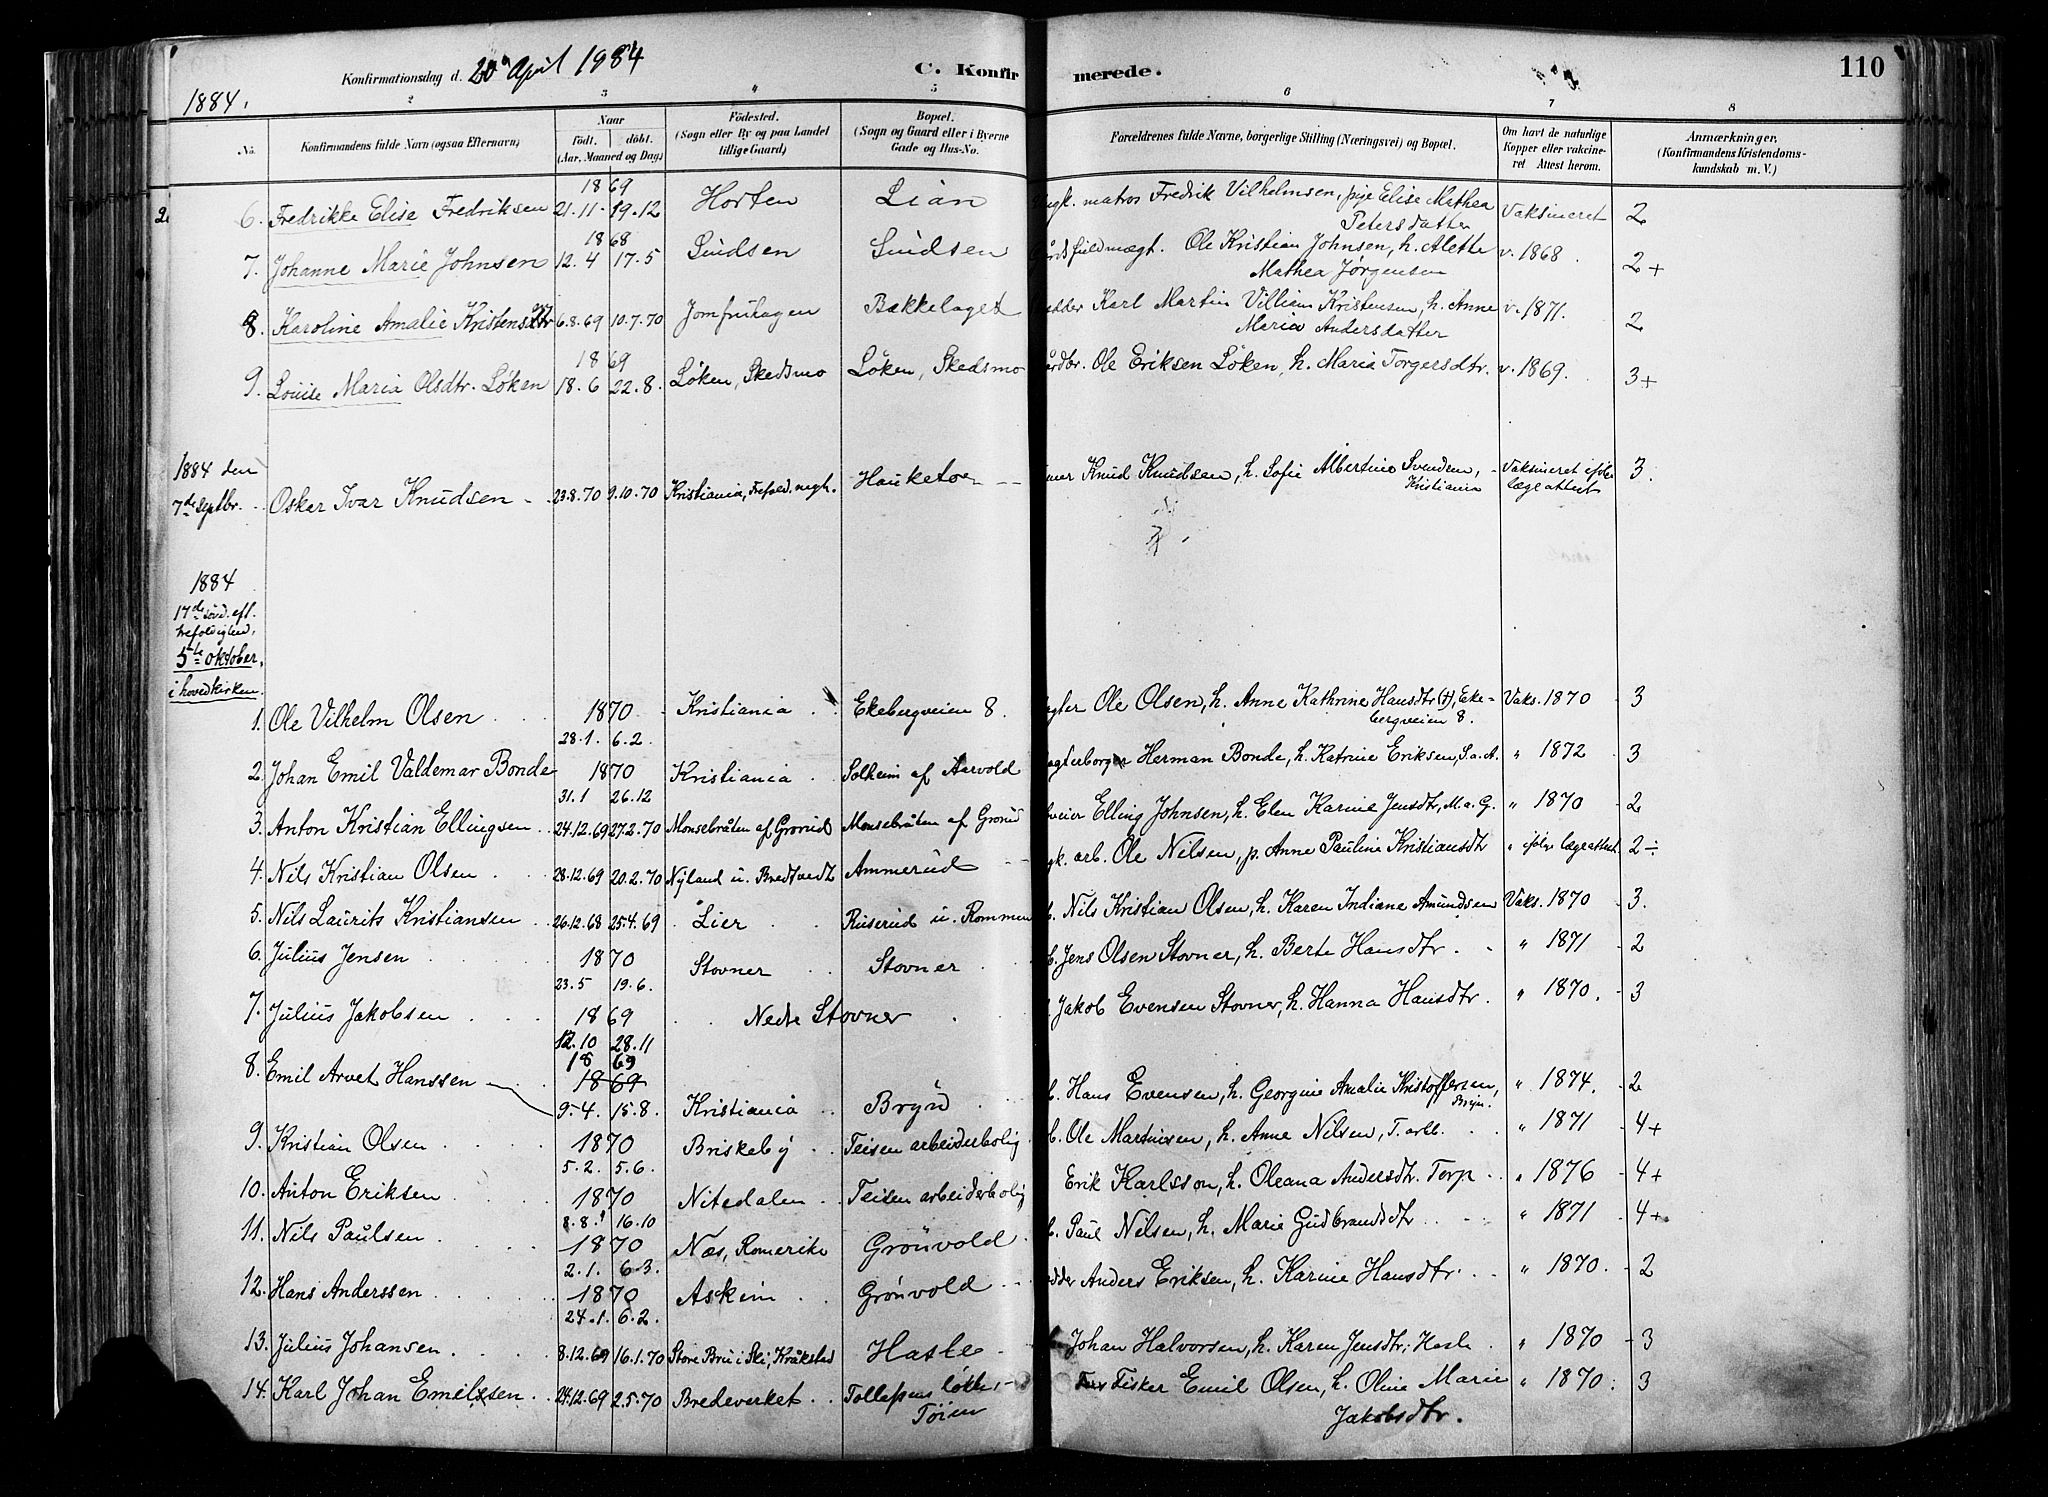 Konfirmationsdag d. 20de April 1984
C. Konfirmerede.
110
1884.
2 3 4 5 6 7 8
No. Konfirmandens fulde Navn (ogsaa Efternavn). Naar født. døbt. (Aar, Maaned og Dag.) Fødested. (Sogn eller By og paa Landet tillige Gaard.) Bopæl. (Sogn og Gaard eller i Byerne Gade og Hus-No. Forældrenes fulde Navne, borgerlige Stilling (Næringsvei) og Bopæl. Om havt de naturlige Kopper eller vakcineret Attest herom. Anmærkninger. (Konfirmandens Kristendomskundskab m. V.)
2 6. Fredrikke Elise Fredriksen 1869 21.11. 19.12 Horten Lian matros Fredrik Vilhelmsen, pige Elise Mathea Petersdatter Vaksineret 2
7. Johanne Marie Johnsen 1868 12.4 17.5 Ole Kristian Johnsen, h. Alette Mathea Jørgensen v. 1868. 2+
8. Karoline Amalie 6.8.69 10.7.70 Jomfruhagen Bækkelaget Karl Martin Villiam Kristensen, h. Anne Maria Andersdatter v. 1871. 2
9. Louise Maria Olsdtr. Løken 1869 18.6 22.8. Løken, Skedsmo Løken, Skedsmo Ole Eriksen Løken, h. Maria Torgersdtr. v. 1869. 3+
1884 den 7de septbr. Oskar Ivar Knudsen 23.8.70 9.10.70 Kristiania, Trefold. megh. Hauketoen Knud Knudsen, h. Sofie Albertine Svendsen, Kristiania Vaksineret ifølge lægeattest 3.
1884
17de sønd. eft.
trefoldighed,
5te oktober,
i hovedkirken.
1. Ole Vilhelm Olsen 1870 28.1. 6.2. Kristiania Ekebergveien 8. Ole Olsen, h. Anne Kathrine Hansdtr (†), Ekebergveien 8. Vaks. 1870 3
2. Johan Emil Valdemar Bonde 1870 31.1 26.12 Kristiania Solheim af Aarvold Herman Bonde, h. Katrine Eriksen, S.a.A. " 1872 3
3. Anton Kristian Ellingsen 24.12.69 27.2.70 Monsebråten af Grorud Monsebråten af Grorud Elling Johnsen, h. Elen Karine Jensdtr, M.a.G. " 1870 2
4. Nils Kristian Olsen 28.12.69 20.2.70 Nyland u. Bredtvedt Ammerud arb. Ole Nilsen, p. Anne Pauline Kristiansdtr " ifølge lægeattest 2÷
5. Nils Laurits Kristiansen 26.12.68 25.4.69 Lier Ruserud u. Rommen Nils Kristian Olsen, h. Karen Indiane Amundsen Vaks. 1870 3.
6. Julius Jensen 1870 23.5 19.6. Stovner Stovner Jens Olsen Stovner, h. Berte Hansdtr. " 1871 2
7. Julius Jakobsen 1869 12.10 28.11 Nedre Stovner Jakob Evensen Stovner, h. Hanna Hansdtr. " 1870. 3
8. Emil Arvet Hanssen 1869 1869 9.4. 15.8. Kristiania Bryn Hans Evensen, h. Georgine Amalie Kristoffersen, Bryn. " 1874. 2
9. Kristian Olsen 1870 5.2. 5.6. Briskeby Teisen arbeiderbolig Ole Martinsen, h. Anne Nilsen, T. arbb. " 1871 4+
10. Anton Eriksen 1870 8.8. 16.10 Nitedalen Teisen arbeiderbolig Erik Karlsson, h. Oleana Andersdtr. Torp " 1876 4+
11. Nils Paulsen 1870 2.1. 6.3. Næs, Romerike Grønvold Paul Nilsen, h. Marie Gudbrandsdtr " 1871 4+
12. Hans Anderssen 1870 24.1. 6.2. Askim Grønvold Anders Eriksen, h. Karine Hansdtr. " 1870. 2
13. Julius Johansen 8.12.69 16.1.70 Store Bru i Ski, Kråkstad Hasle Johan Halvorsen, h. Karen Jensdtr, Hasle " 1870 3
14. Karl Johan Emilssen 24.12.69 2.5.70 Bredeverket Tollefsens løkke, Tøien Fisker Emil Olsen, h. Oline Marie Jakobsdtr. " 1870. 3